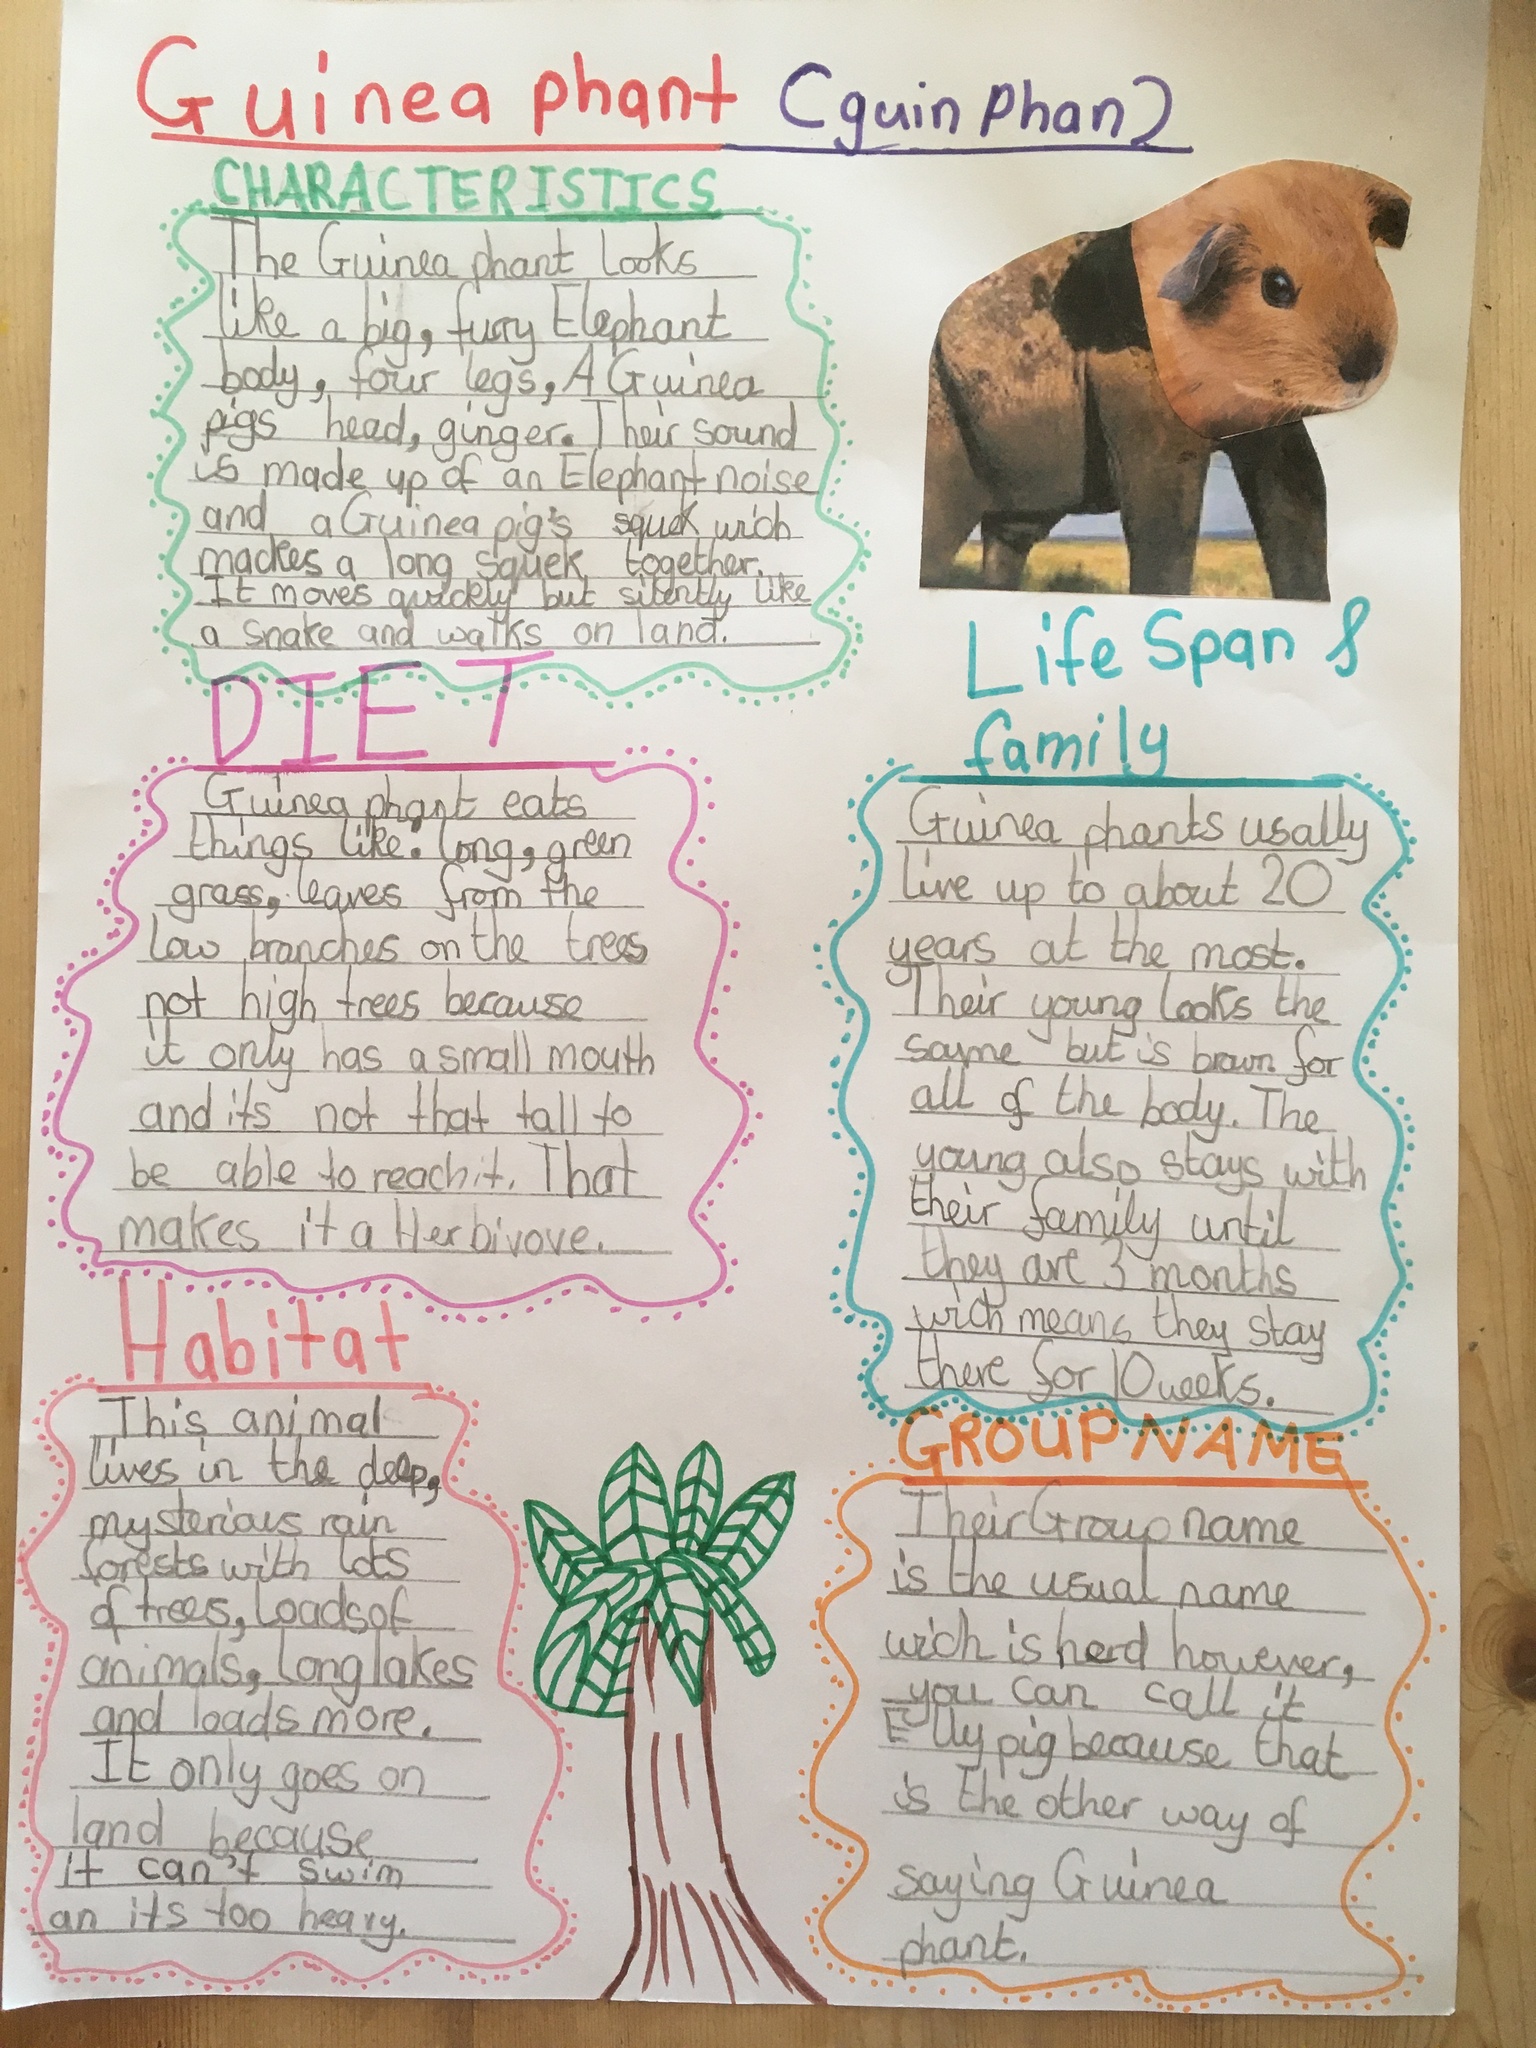 Guinea phant (guin phan)
CHARACTERISTICS
The Guinea phant looks
like a big, furry Elephant
body, four legs, A Guinea
pigs head, ginger. Their sound
is made up of an Elephant noise
and a Guinea pig's squek wich
mackes a long squek together.
It moves quickly but silently like
a snake and walks on land.
DIET
Guinea phant eats
things like. long, green
grass, leaves from the
low branches on the trees
not high trees because
it only has a small mouth
and its not that tall to
be able to reach it. That
makes it a Herbivove.
Habitat
This animal
lives in the deep,
mysterious rain
forests with lots
of trees, loads of
animals, long lakes
and loads more.
It only goes on
land because
it can't swim
an its too heavy.
Life Span &
family
Guinea phants usally
live up to about 20
years at the most.
Their young looks the
sayme but is brown for
all of the body. The
young also stays with
their family until
they are 3 months
wich means they stay
there for 10 weeks.
GROUP NAME
Their Group name
is the usual name
wich is herd however,
you can call it
Elly pig because that
is the other way of
saying Guinea
phant.